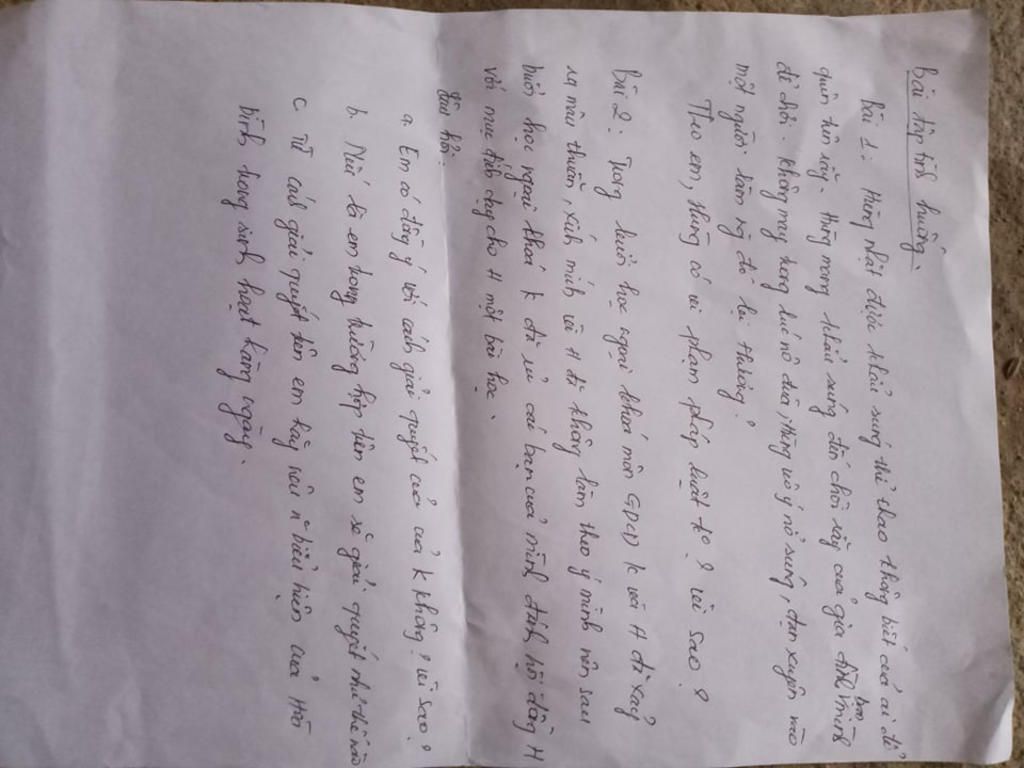 Bài tập tình huống.
Bài 1: Hùng nhặt được khẩu súng thể thao không biết của ai để
quên trên rẫy. Hùng mang khẩu súng đến chòi rẫy của gia đình mình
để chơi. Không may trong lúc nô đùa, Hùng vô ý nổ súng, đạn xuyên vào
một người làm rẫy đó bị thương.
Theo em, Hùng có vi phạm pháp luật k°? vì sao?
Bài 2: Trong buổi học ngoại khoá môn GDCD K và H đã xảy
ra mâu thuẫn, xích mích vì H đã không làm theo ý mình nên sau
buổi học ngoại khoá K đã rủ các bạn của mình đánh hội đồng H
với mục đích dạy cho H một bài học.
Câu hỏi:
a. Em có đồng ý với cách giải quyết của K không? vì sao?
b. Nếu là em trong trường hợp trên em sẽ giải quyết như thế nào
c. Từ cách giải quyết trên em hãy nêu n~ biểu hiện của hoà
bình trong sinh hoạt hàng ngày.